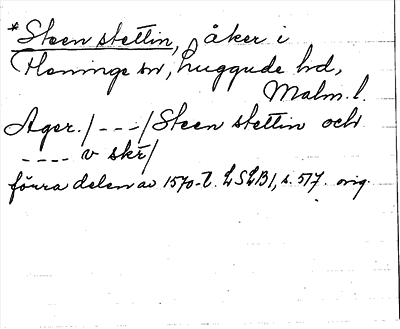 *Steen stettin, åker i
Fleninge sn, Luggude hd,
Malm. l.
Ager. /---/ Steen stettin och
---- v skr/
förra delen av 1570-t. LSLB1, s. 517. orig.